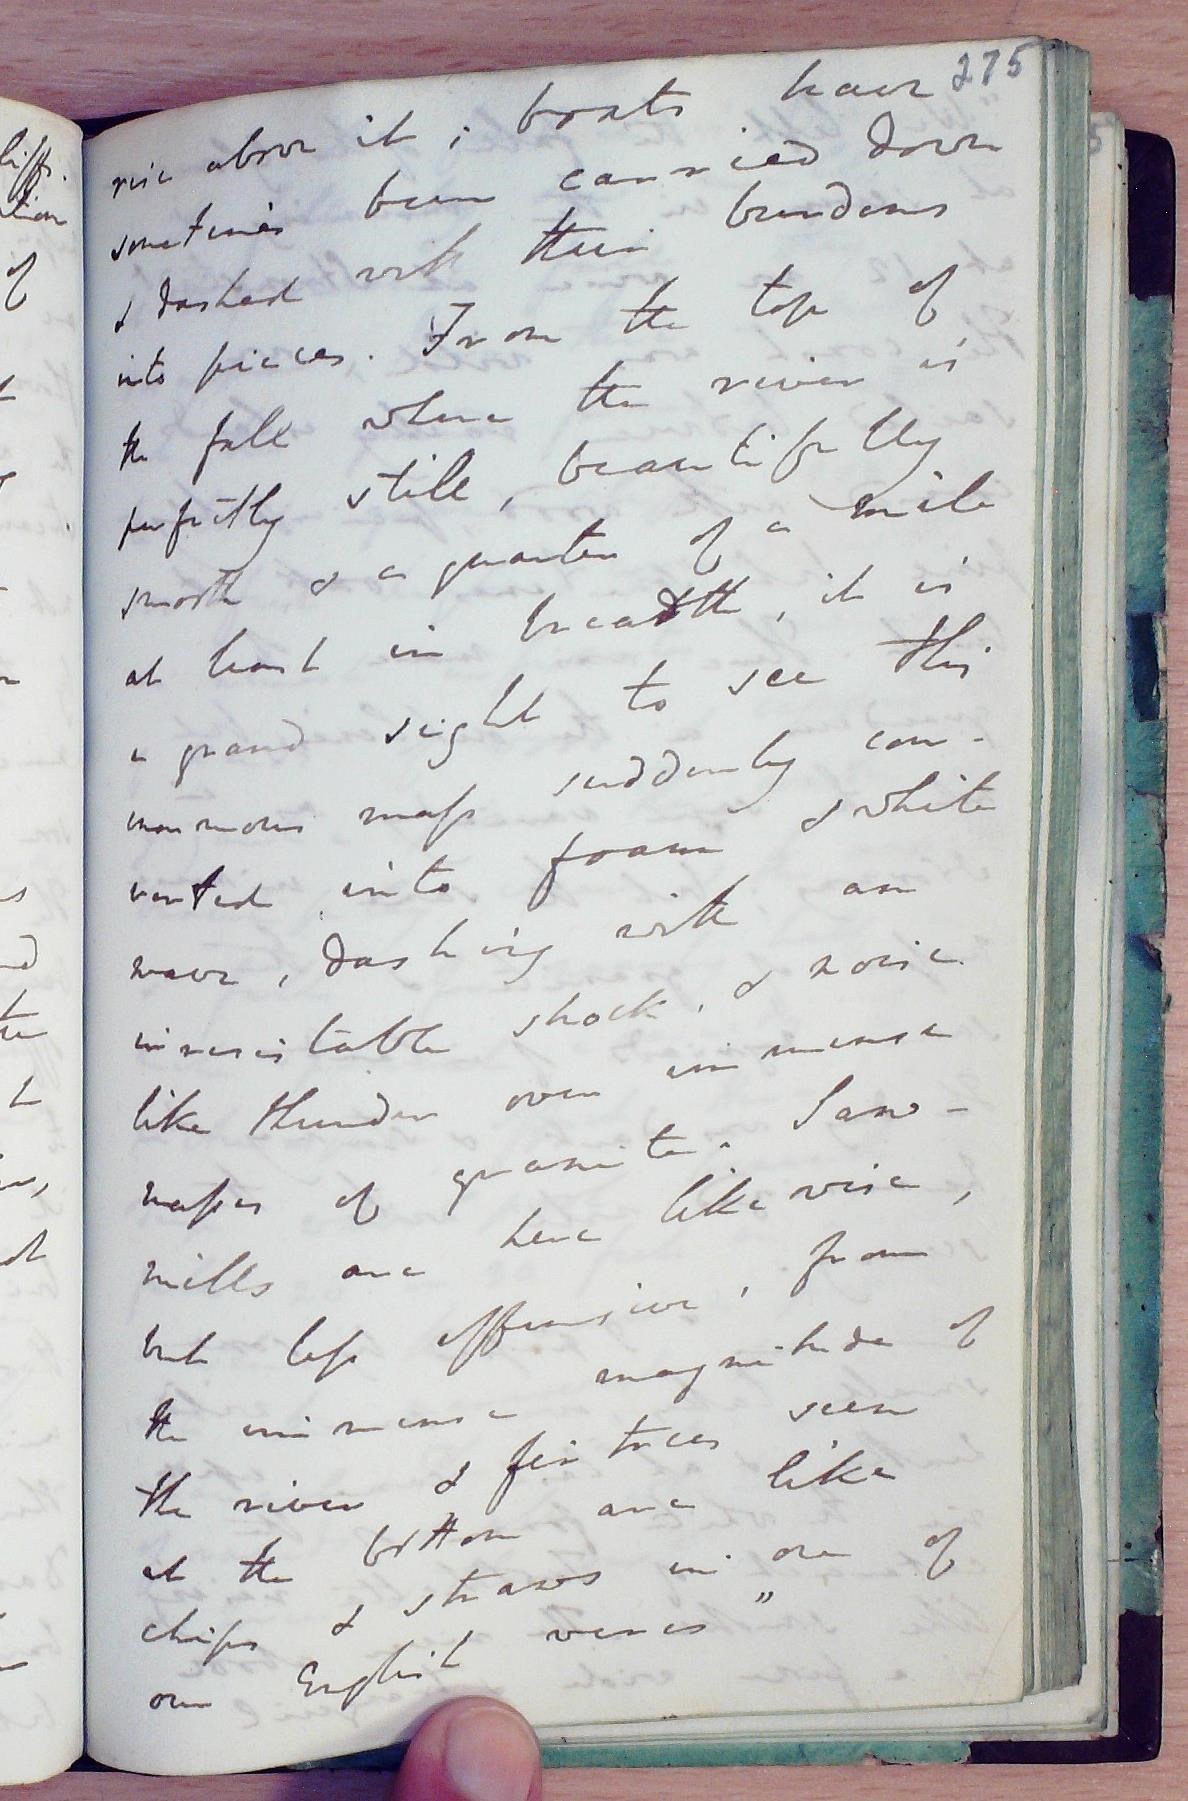 275
rise above it ; boats have
sometimes been carried down
& dashed with their burdens
into pieces. From the top of
the fall where the river is
perfectly still, beautifully
smooth & a quarter of a mile
at least in breadth, it is
a grand sight to see this
enormous mass suddenly con-
verted into foam & white
wave, dashing with an
irresistable shock, & noise
like thunder over immense
masses of granite. Saw-
mills are here likewise,
but less offensive, from
the immense magnitude of
the river & fir trees seen
at the bottom are like
chips & straws in one of
our English